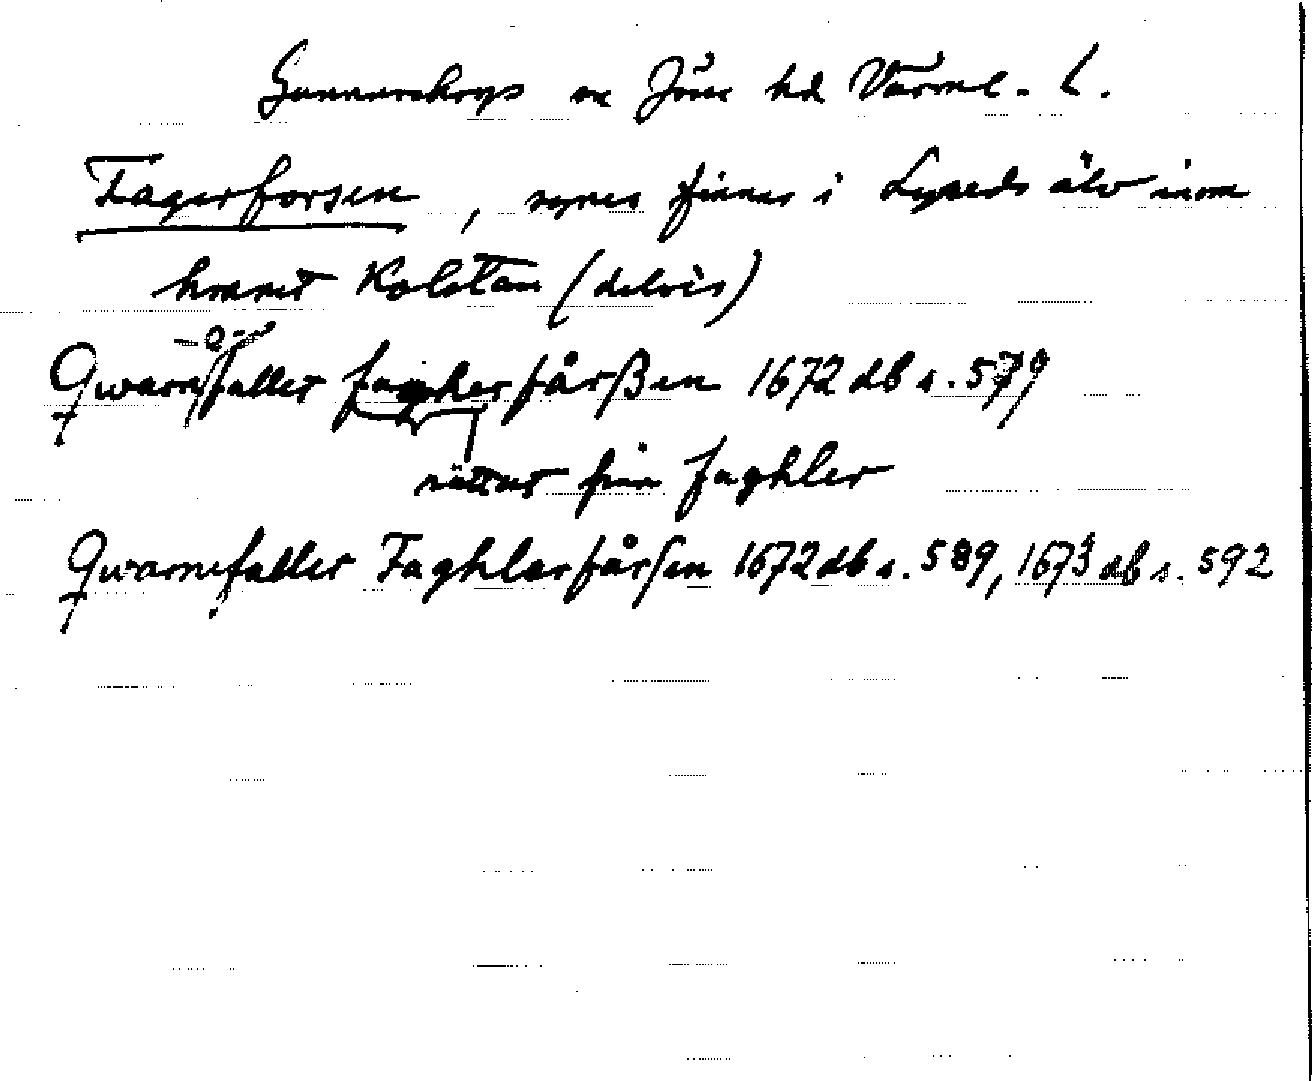 Gunnarskogs sn Jösse hd Värml. L.
Fagerforsen, synes finnas i Lyseds älv inom
hemmet Kolstan (delvis)
-e-
Qwarnfallet fagherfårßen 1672 db s. 579
rättat från faghler
Qwarnefallet Faghlarfårsen 1672 db s. 589, 1673 db s. 592